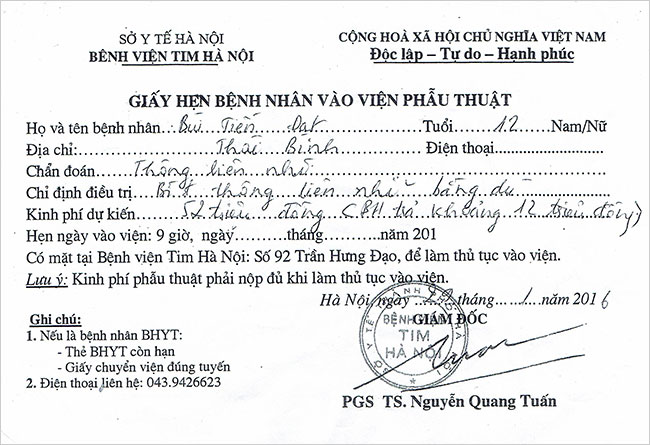 SỞ Y TẾ HÀ NỘI
BỆNH VIỆN TIM HÀ NỘI
CỘNG HOÀ XÃ HỘI CHỦ NGHĨA VIỆT NAM
Độc lập – Tự do – Hạnh phúc
GIẤY HẸN BỆNH NHÂN VÀO VIỆN PHẪU THUẬT
Họ và tên bệnh nhân Bùi Tiến Đạt Tuổi 12 Nam/Nữ
Địa chỉ: Thái Bình Điện thoại
Chẩn đoán Thông liên nhĩ
Chỉ định điều trị Bít thông liên nhĩ bằng dù
Kinh phí dự kiến 52 triệu đồng (BH trả khoảng 12 triệu đồng)
Hẹn ngày vào viện: 9 giờ, ngày tháng năm 201
Có mặt tại Bệnh viện Tim Hà Nội: Số 92 Trần Hưng Đạo, để làm thủ tục vào viện.
Lưu ý: Kinh phí phẫu thuật phải nộp đủ khi làm thủ tục vào viện.
Hà Nội, ngày tháng 1 năm 2016
GIÁM ĐỐC
BỆNH VIỆN
TIM
HÀ NỘI
PGS TS. Nguyễn Quang Tuấn
Ghi chú:
1. Nếu là bệnh nhân BHYT:
- Thẻ BHYT còn hạn
- Giấy chuyển viện đúng tuyến
2. Điện thoại liên hệ: 043.9426623